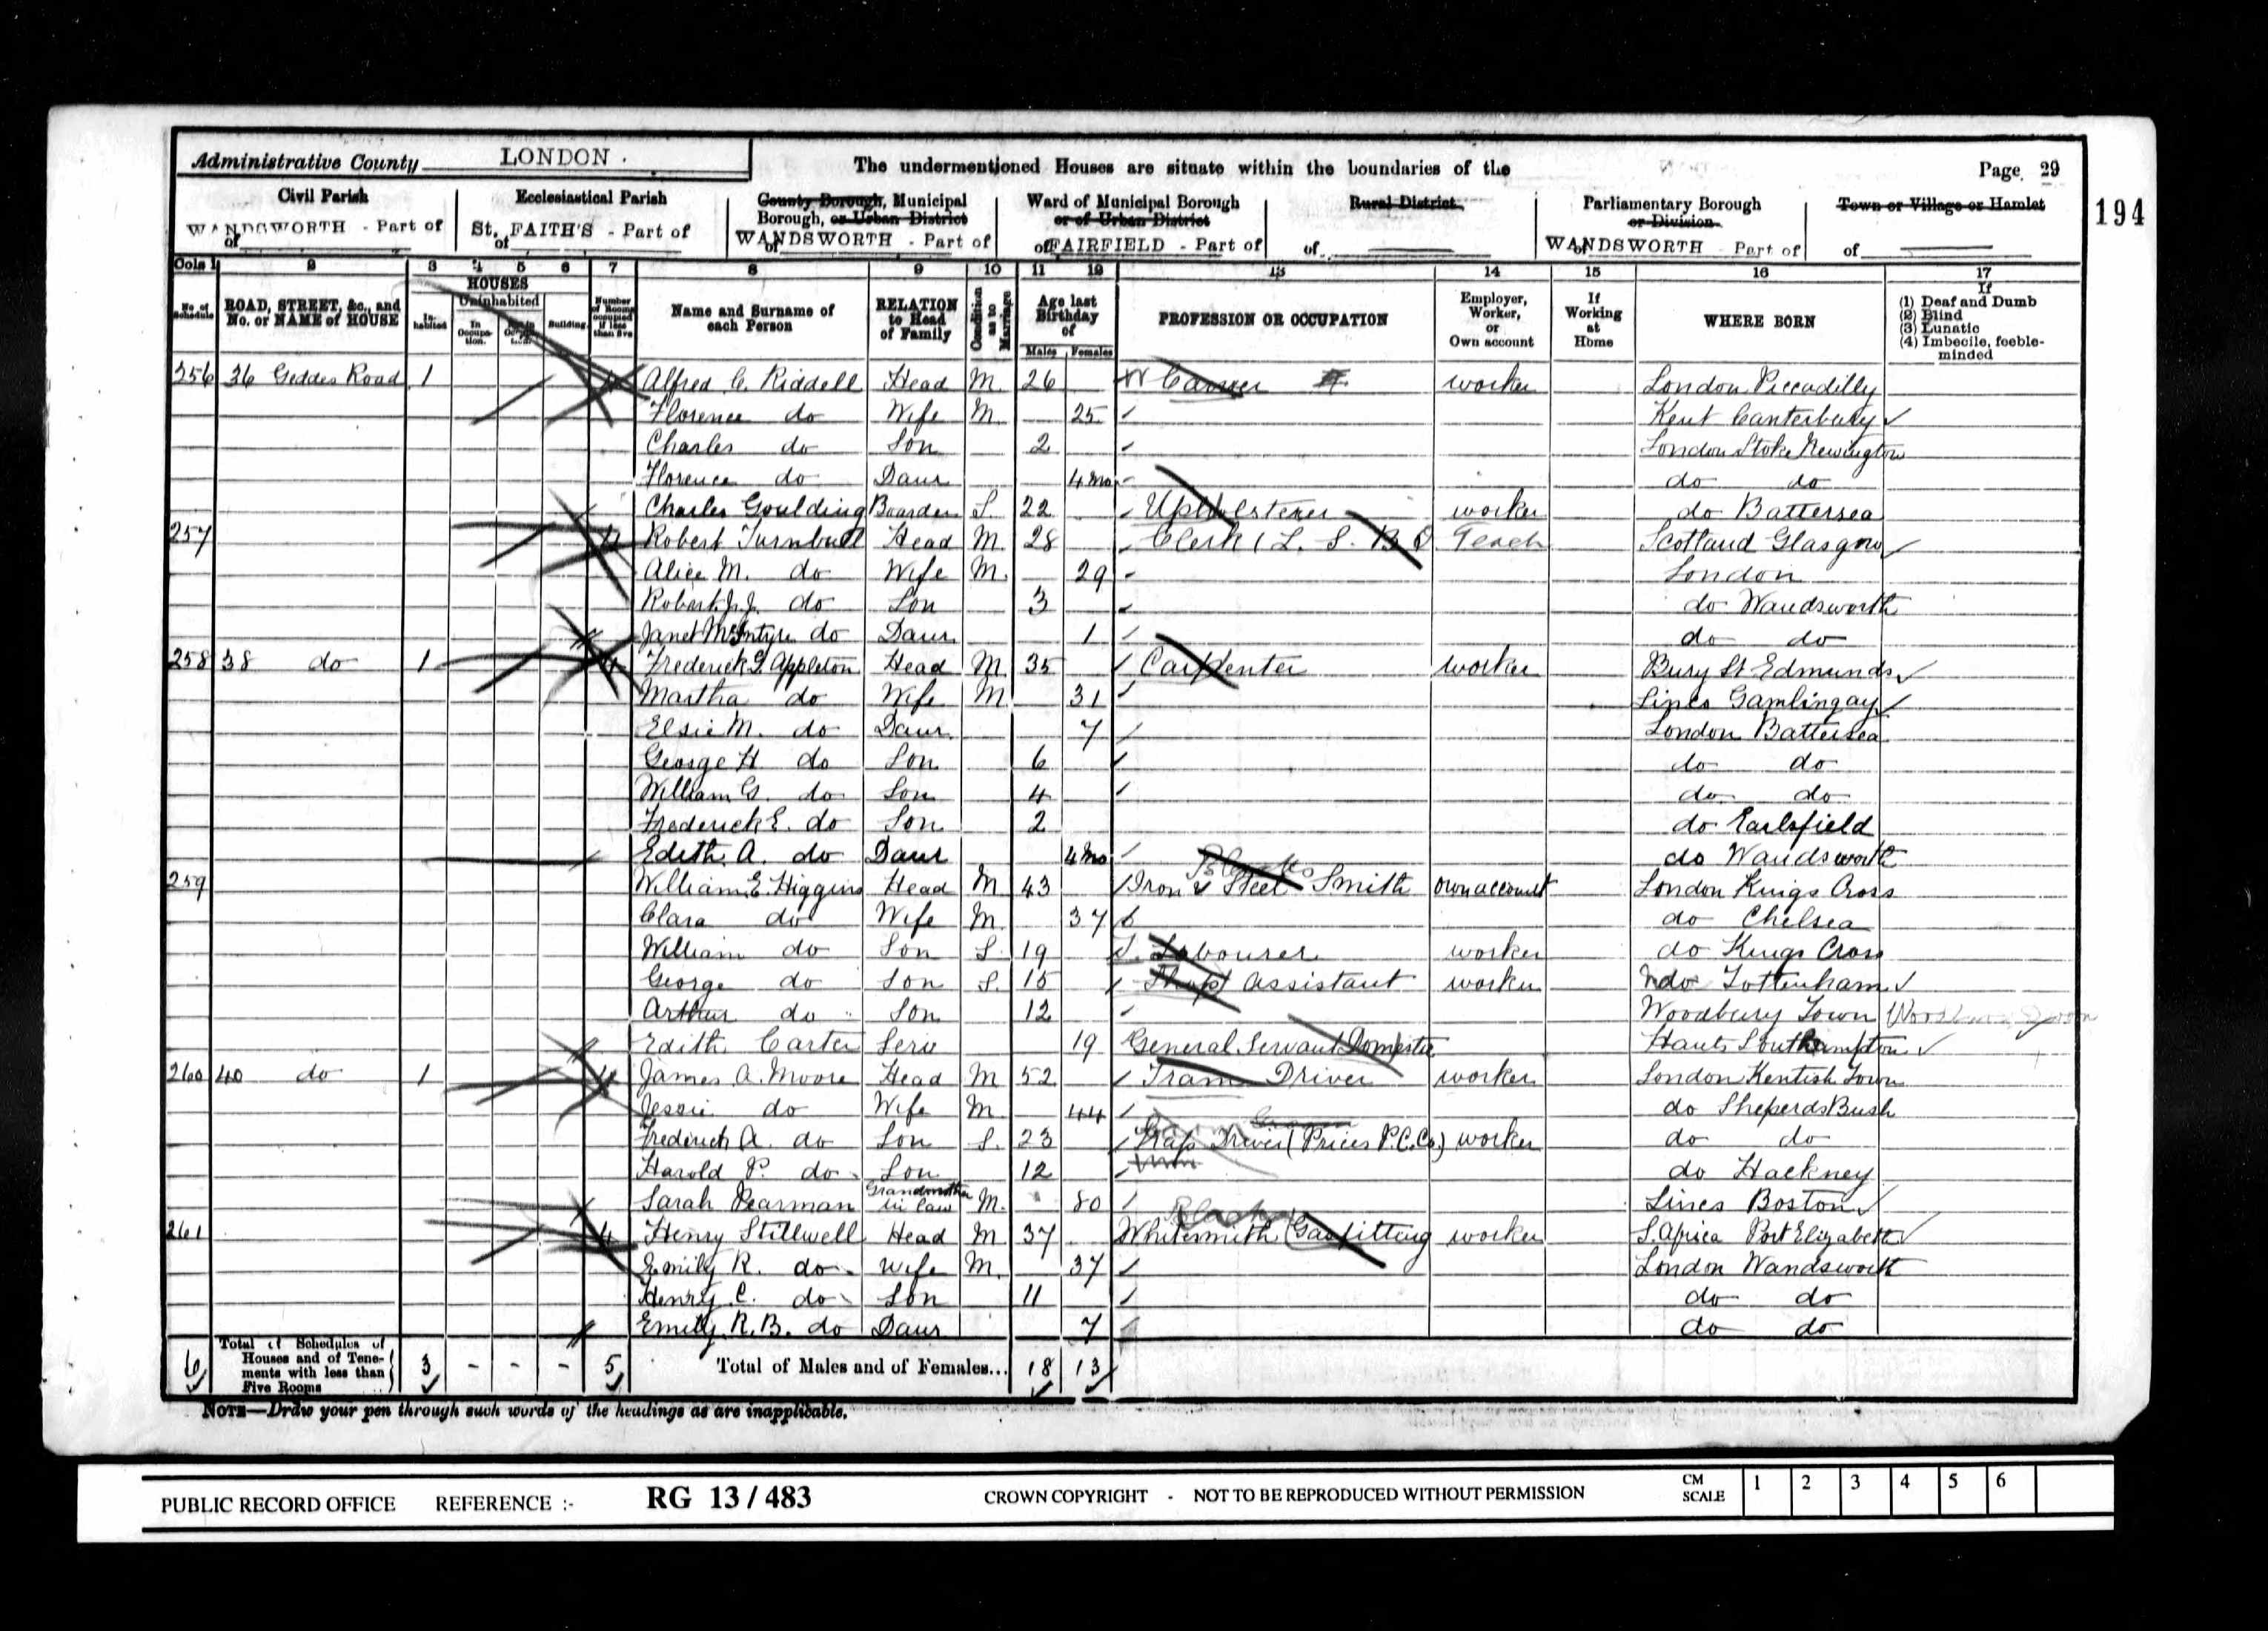 Administrative County LONDON.
The undermentioned Houses are situate within the boundaries of the
Page 29
194
Civil Parish
Ecclesiastical Parish
County Borough, Municipal Borough, or Urban District
Ward of Municipal Borough or of Urban District
Rural District
Parliamentary Borough or Division
Town or Village or Hamlet
of WANDSWORTH - Part of
of St. FAITH'S - Part of
of WANDSWORTH - Part of
of FAIRFIELD - Part of
of
of WANDSWORTH Part of
of
Cols 1 2 3 4 5 6 7 8 9 10 11 12 13 14 15 16 17
No. of Schedule
ROAD, STREET, &c., and No. or NAME of HOUSE
HOUSES
Inhabited
Uninhabited
In Occupation.
Building.
Number of Rooms occupied if less than five
Name and Surname of each Person
RELATION to Head of Family
Condition as to Marriage
Age last Birthday of
Males Females
PROFESSION OR OCCUPATION
Employer, Worker, or Own account
If Working at Home
WHERE BORN
If
(1) Deaf and Dumb
(2) Blind
(3) Lunatic
(4) Imbecile, feeble-minded
256 36 Geddes Road 1 4 Alfred C. Riddell Head M. 26 W Carver worker London Piccadilly
Florence do Wife M. 25 Kent Canterbury
Charles do Son 2 London Stoke Newington
Florence do Daur 4 mo do do
Charles Goulding Boarder S. 22 Upholsterer worker do Battersea
257 4 Robert Turnbull Head M. 28 Clerk (L. S. B.) Teach Scotland Glasgow
Alice M. do Wife M. 29 London
Robert J. J. do Son 3 do Wandsworth
Janet McIntyre do Daur 1 do do
258 38 do 1 4 Frederick G. Appleton Head M. 35 Carpenter worker Bury St Edmunds
Martha do Wife M 31 Lincs Gamlingay
Elsie M. do Daur. 7 London Battersea
George H do Son 6 do do
William G. do Son 4 do do
Frederick E. do Son 2 do Earlsfield
Edith. A. do Daur 4 mo do Wandsworth
259 William E. Higgins Head M 43 Iron & Steel Smith own account London Kings Cross
Clara do Wife M. 37 do Chelsea
William do Son S. 19 Labourer worker do Kings Cross
George do Son S. 15 Shop Assistant worker do Tottenham
Arthur do Son 12 Woodbury Town
Edith Carter Serv 19 General Servant Domestic Hants Southampton
260 40 do 1 4 James A. Moore Head M 52 Tram Driver worker London Kentish Town
Jessie do Wife M. 44 do Sheperds Bush
Frederick A. do Son S. 23 Trap Driver (Prices P.C.Co.) worker do do
Harold P. do Son 12 do Hackney
Sarah Pearman Grandmother in law M. 80 Lincs Boston
261 4 Henry Stillwell Head M 37 Whitesmith (Gasfitting worker S. Africa Port Elizabeth
Emily R. do Wife M. 37 London Wandsworth
Henry C. do Son 11 do do
Emily R. B. do Daur 7 do do
6 Total of Schedules of Houses and of Tenements with less than Five Rooms 3 - - - 5 Total of Males and of Females... 18 13
NOTE—Draw your pen through such words of the headings as are inapplicable.
PUBLIC RECORD OFFICE REFERENCE :- RG 13 / 483 CROWN COPYRIGHT - NOT TO BE REPRODUCED WITHOUT PERMISSION CM SCALE 1 2 3 4 5 6